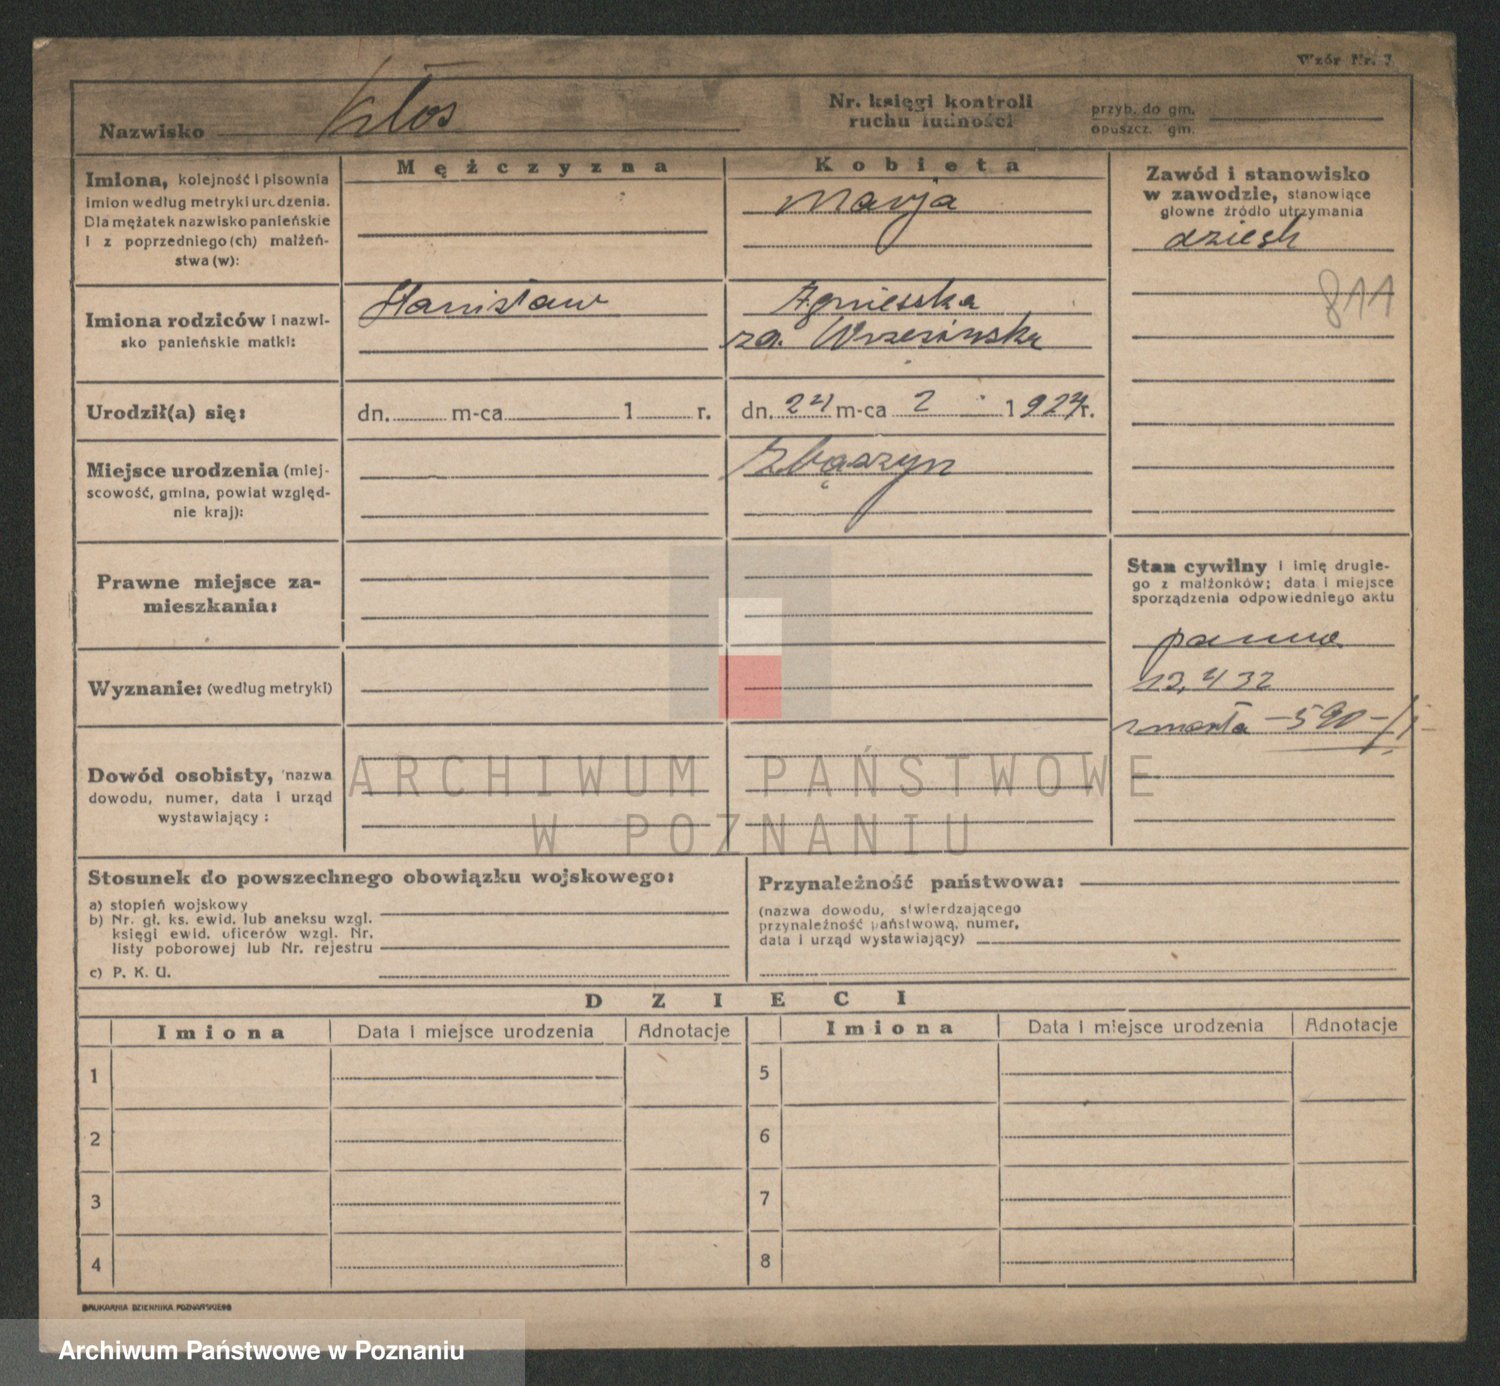 Wzór Nr. 7
Nazwisko Kłos
Nr. księgi kontroli
ruchu ludności
przyb. do gm.
opuszcz. gm.
Mężczyzna
Kobieta
Imiona, kolejność i pisownia
imion według metryki urodzenia.
Dla mężatek nazwisko panieńskie
i z poprzedniego (ch) małżeń-
stwa (w):
Marja
Zawód i stanowisko
w zawodzie, stanowiące
głowne źródło utrzymania
811
Imiona rodziców i nazwi-
sko panieńskie matki:
Stanisław
Agnieszka
Urodził(a) się:
dn. m-ca 1 r.
dn. 24 m-ca 2 1924 r.
Miejsce urodzenia (miej-
scowość, gmina, powiat względ-
nie kraj):
Zbąszyn
Prawne miejsce za-
mieszkania:
Stan cywilny i imię drugie-
go z małżonków; data i miejsce
sporządzenia odpowiedniego aktu
panna
zmarła
Wyznanie: (według metryki)
Dowód osobisty, nazwa
dowodu, numer, data i urząd
wystawiający:
ARCHIWUM PAŃSTWOWE
W POZNANIU
Stosunek do powszechnego obowiązku wojskowego:
a) stopień wojskowy
b) Nr. gł. ks. ewid. lub aneksu wzgl.
księgi ewid. oficerów wzgl. Nr.
listy poborowej lub Nr. rejestru
c) P. K. U.
Przynależność państwowa:
(nazwa dowodu, stwierdzającego
przynależność państwową, numer,
data i urząd wystawiający)
DZIECI
Imiona Data i miejsce urodzenia Adnotacje
Imiona Data i miejsce urodzenia Adnotacje
1
2
3
4
5
6
7
8
DRUKARNIA DZIENNIKA POZNAŃSKIEGO
Archiwum Państwowe w Poznaniu